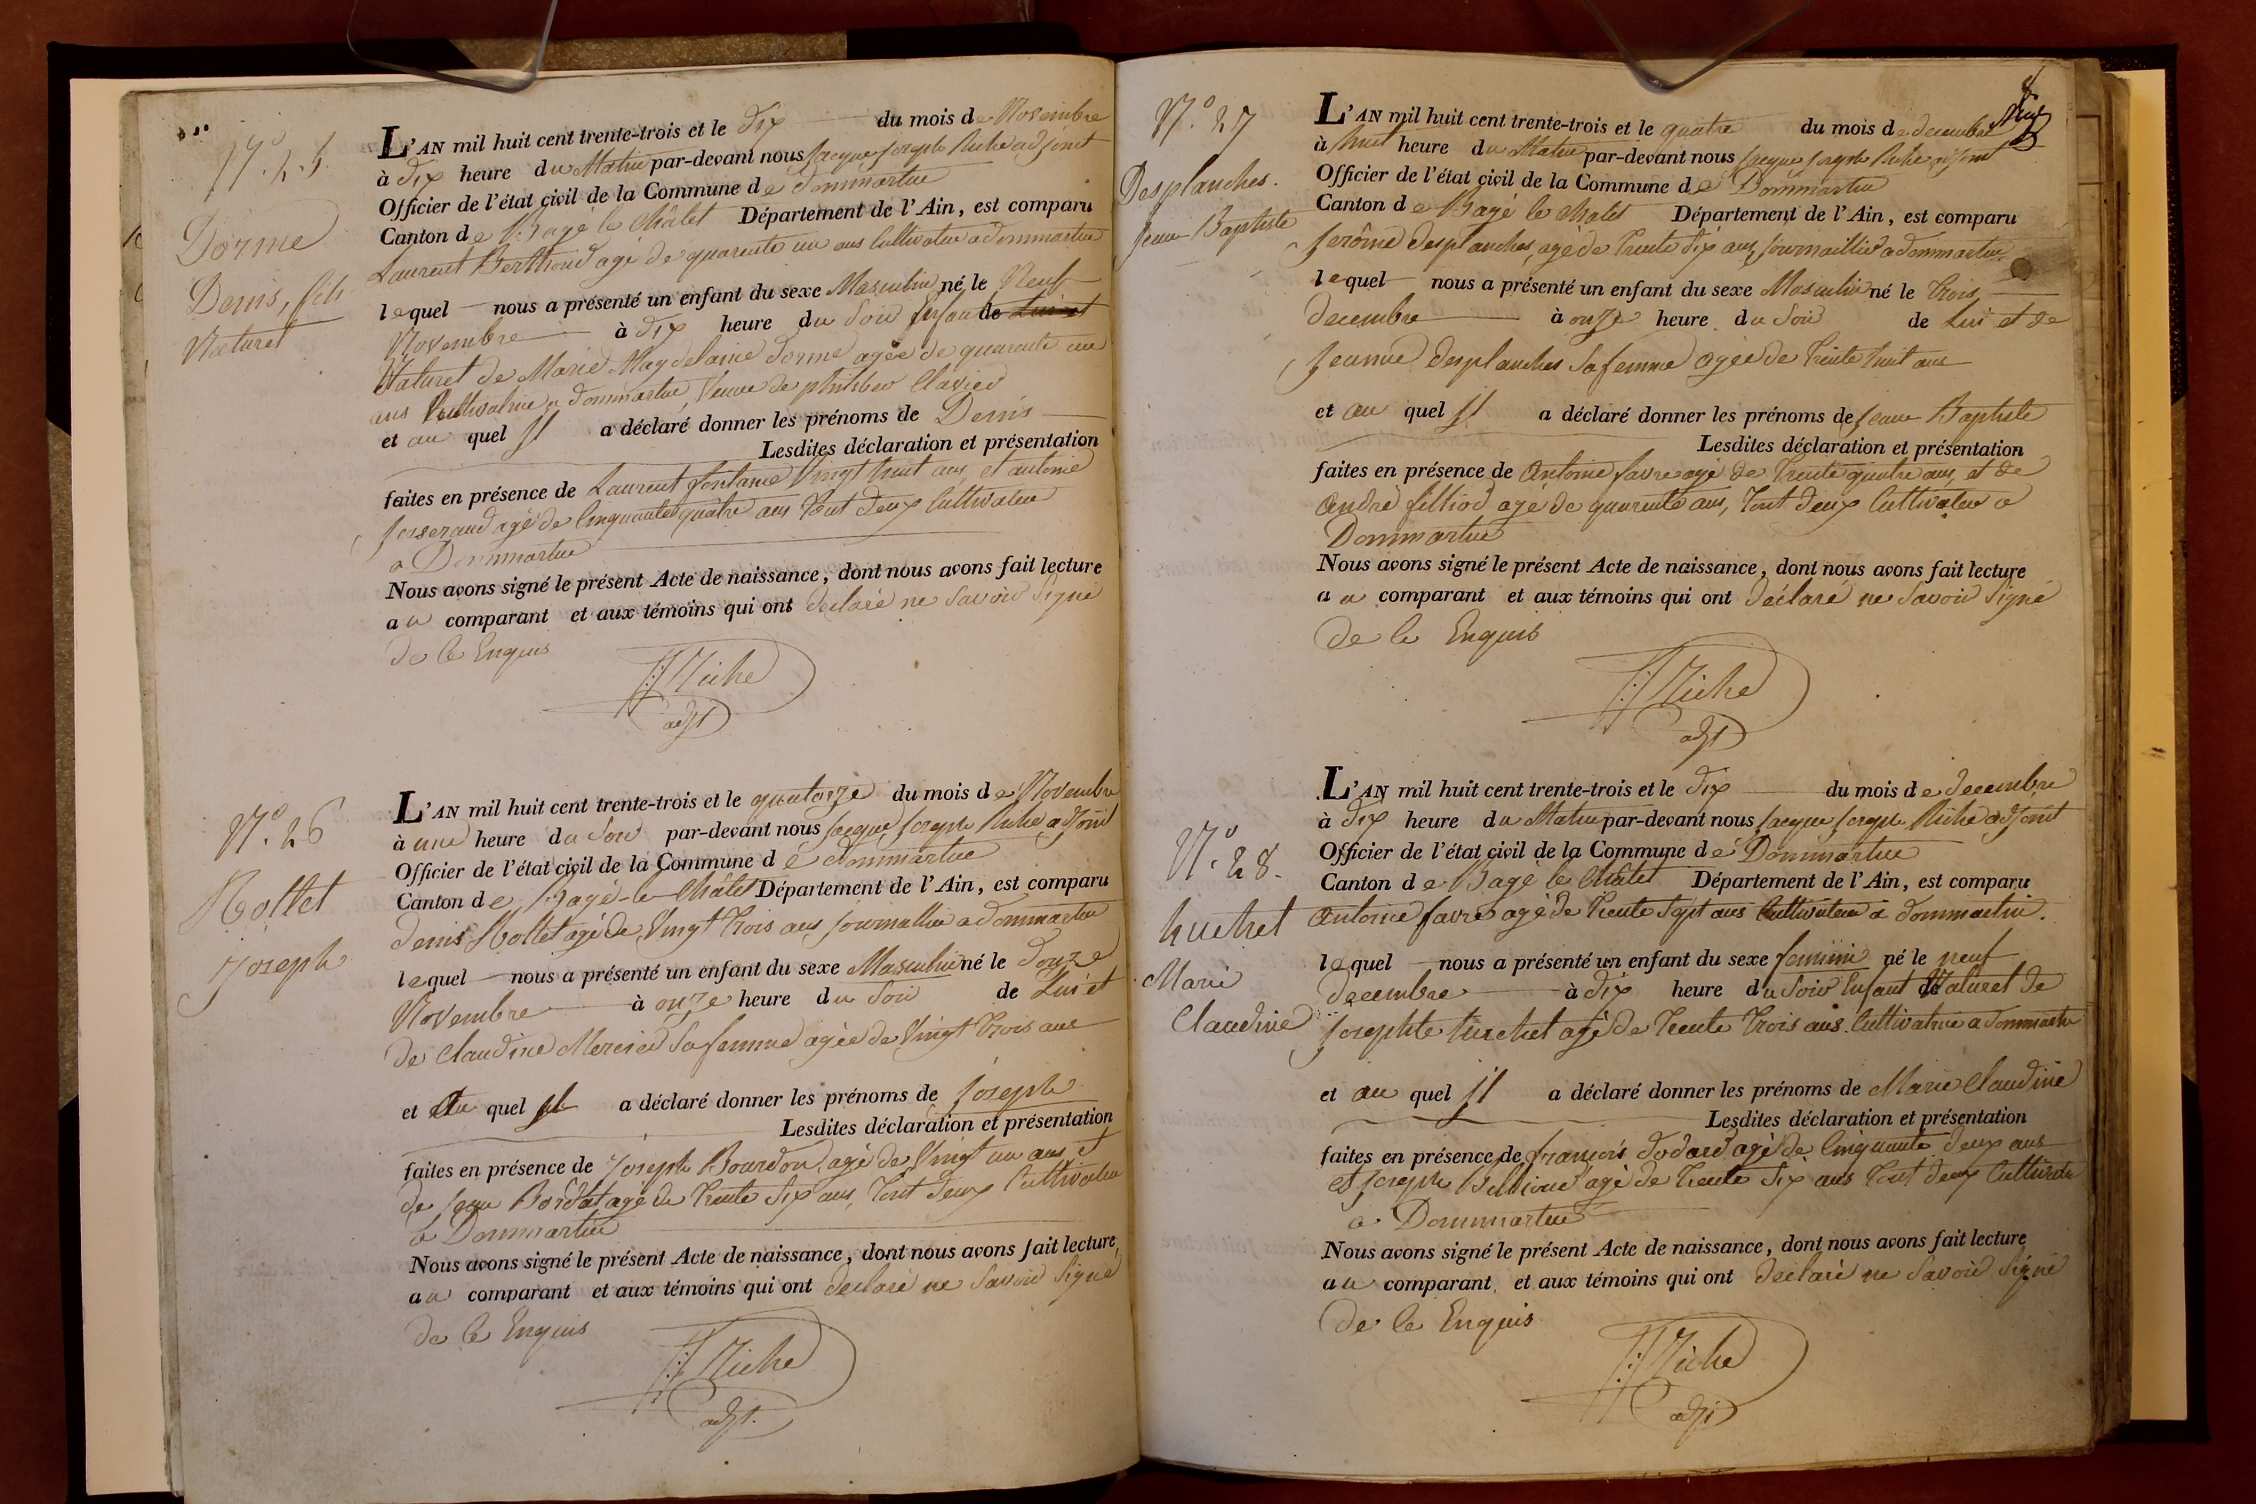 N.° 25
Dorme
Denis, fils
Naturel
L'AN mil huit cent trente-trois et le dix du mois de Novembre
à dix heure du Matin par-devant nous Jacque Joseph Riche adjoint
Officier de l'état civil de la Commune de Dommartin
Canton de Bagé le Châtel Département de l'Ain, est comparu
Laurent Berthoud agé de quarente un ans Cultivateur a dommartin
lequel nous a présenté un enfant du sexe Masculin né le Neuf
Novembre à dix heure du Soir Enfan de Lui et
Naturel de Marie Magdelaine Dorme agée de quarente un
ans Cultivatrice a dommartin, Veuve de philibert Clavier
et au quel Il a déclaré donner les prénoms de Denis
Lesdites déclaration et présentation
faites en présence de Laurent fontaine Vingt huit ans, et antoine
Josserand agé de Cinquante quatre ans Tout deux Cultivateur
a Dommartin
Nous avons signé le présent Acte de naissance, dont nous avons fait lecture
au comparant et aux témoins qui ont declaré ne Savoir Signé
de ce Enquis
JJ Riche
adjt
N.° 26
Mollet
Joseph
L'AN mil huit cent trente-trois et le quatorze du mois de Novembre
à une heure du Soir par-devant nous Jacque Joseph Riche adjoint
Officier de l'état civil de la Commune de Dommartin
Canton de Bagé-le Châtel Département de l'Ain, est comparu
denis Mollet agé de Vingt trois ans journallier a dommartin
lequel nous a présenté un enfant du sexe Masculin né le Douze
Novembre à onze heure du Soir de Lui et
de Claudine Mercier Sa femme agée de Vingt Trois ans
et Au quel il a déclaré donner les prénoms de Joseph
Lesdites déclaration et présentation
faites en présence de Joseph Bourdon, agé de Vingt un ans et
de Jean Bordat agé de Trente Six ans, Tout deux Cultivateur
a Dommartin
Nous avons signé le présent Acte de naissance, dont nous avons fait lecture,
au comparant et aux témoins qui ont declaré ne Savoir Signé
de ce Enquis
JJ Riche
adjt.
8
N.° 27
Desplanches.
Jean Baptiste
L'AN mil huit cent trente-trois et le quatre du mois de decembre
à huit heure du Matin par-devant nous Jacque Joseph Riche adjoint
Officier de l'état civil de la Commune de Dommartin
Canton de Bagé le Châtel Département de l'Ain, est comparu
Jerôme desplanches, agé de Trente Six ans, Journaillier a dommartin
lequel nous a présenté un enfant du sexe Masculin né le trois
decembre à onze heure du Soir de Lui et de
Jeanne desplanches Sa femme agée de Trente huit ans
et au quel Il a déclaré donner les prénoms de Jean Baptiste
Lesdites déclaration et présentation
faites en présence de Antoine favre agé de Trente quatre ans, et de
André filliod agé de quarente ans, Tout deux Cultivateur a
Dommartin
Nous avons signé le présent Acte de naissance, dont nous avons fait lecture
au comparant et aux témoins qui ont déclaré ne Savoir Signé
de ce Enquis
JJ Riche
adjt
N.° 28.
Marie
Claudine
L'AN mil huit cent trente-trois et le dix du mois de decembre
à dix heure du Matin par-devant nous Jacque Joseph Riche adjoint
Officier de l'état civil de la Commune de Dommartin
Canton de Bagé le Châtel Département de l'Ain, est comparu
Antoine favre agé de Trente Sept ans Cultivateur à dommartin.
lequel nous a présenté un enfant du sexe feminin né le neuf
decembre à dix heure du Soir Enfant Naturel de
Josephte agé de Trente Trois ans Cultivatrice a dommartin
et au quel Il a déclaré donner les prénoms de Marie Claudine
Lesdites déclaration et présentation
faites en présence de françois dodard agé de Cinquante deux ans
et Joseph agé de Trente Six ans Tout deux Cultivateur
a Dommartin
Nous avons signé le présent Acte de naissance, dont nous avons fait lecture
au comparant et aux témoins qui ont declaré ne Savoir Signé
de ce Enquis
JJ Riche
adjt